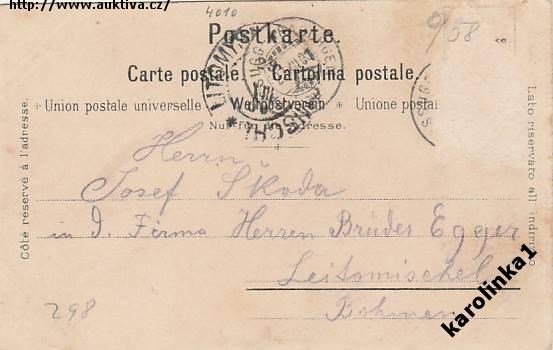 http://www.auktiva.cz/
4010
Postkarte.
958
Carte postale. Cartolina postale.
Union postale universelle Weltpostverein Unione postal
Nur für die Adresse.
Côté réservé à l'adresse.
Lato riservato all' indirizzo
LITOMYŠL
Herrn
Josef Škoda
in d. Firma Herren Brüder Egger
Leitomischel
Böhmen
298
karolinka1